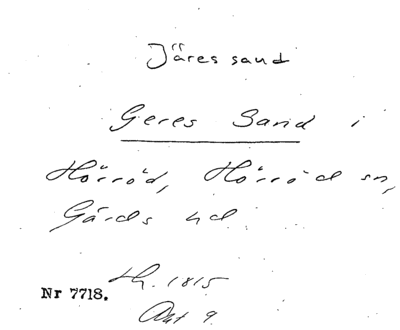 Järes sand
Geres Sand i
Hörröd, Hörröd sn,
Gärds hd.
Lh. 1815
Nr 7718.
Akt 9.